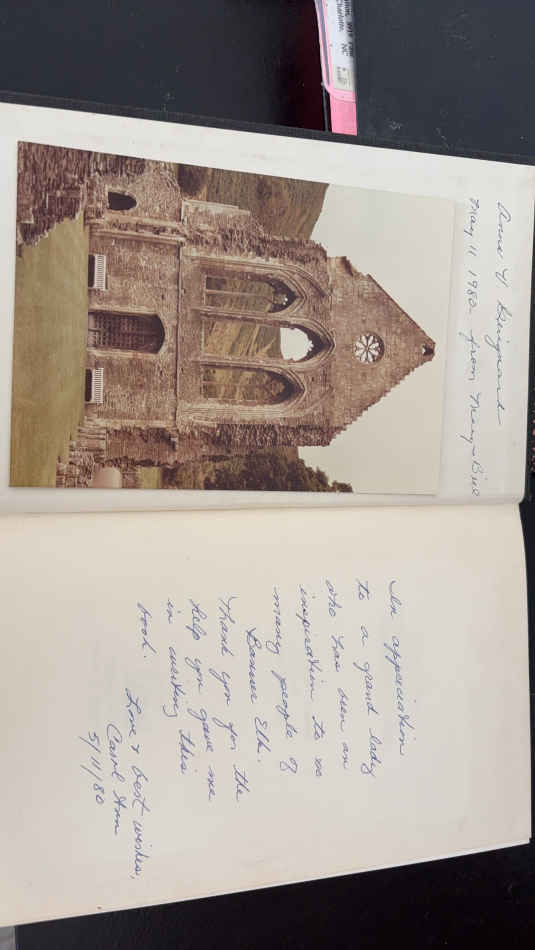 Anne H
May 11 1980 from Mary + Bill
In appreciation
to a grand lady
who has been an
inspiration to so
many people of
Banner Elk.
Thank you for the
help you gave me
in writing this
book.
Love & best wishes,
Carol Ann
5/11/80
Charlotte, NC